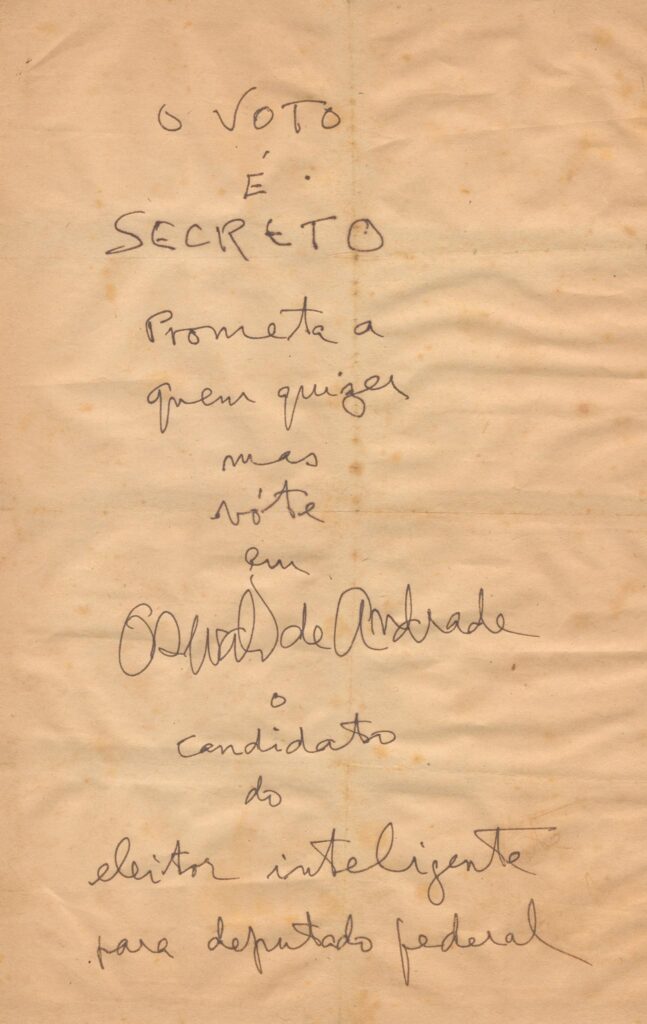 O VOTO
É
SECRETO
Prometa a
quem quizer
mas
vóte
em
Oswald de Andrade
o
candidato
do
eleitor inteligente
para deputado federal